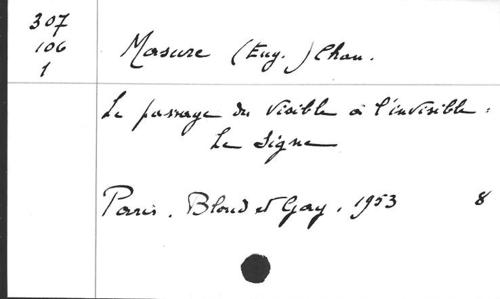 307
106
1
Masure (Eug.) Chan.
Le passage du visible à l'invisible :
Le Signe
Paris. Bloud et Gay. 1953 8